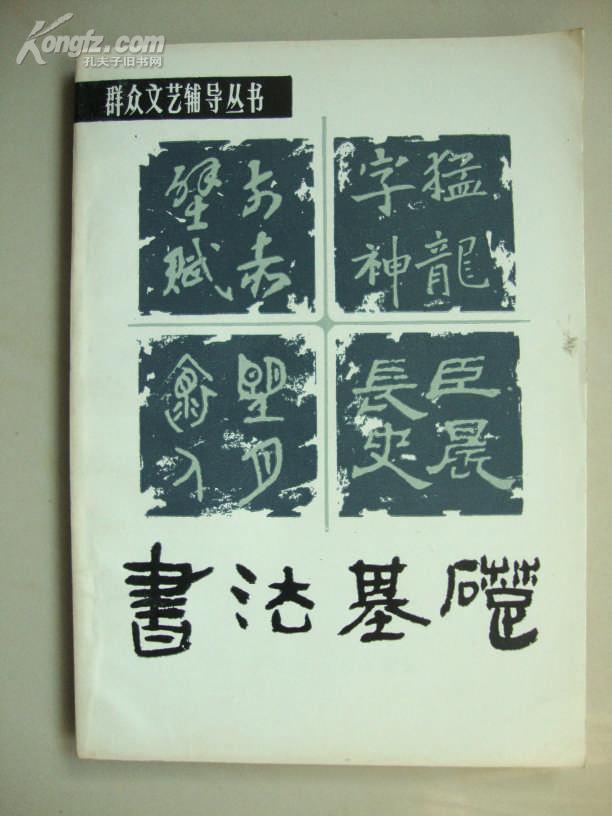 Kongfz.com
孔夫子旧书网
群众文艺辅导丛书
前赤
壁赋
猛龍
字神
臣晨
長史
書法基礎